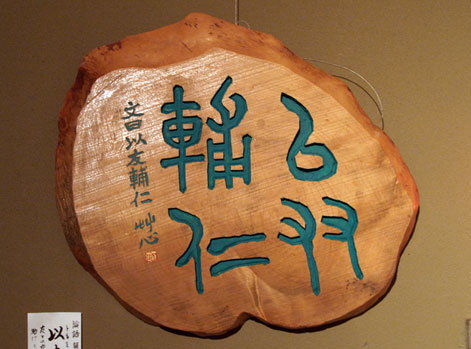 以友
輔仁
文曰以友輔仁 艸心
論語
以